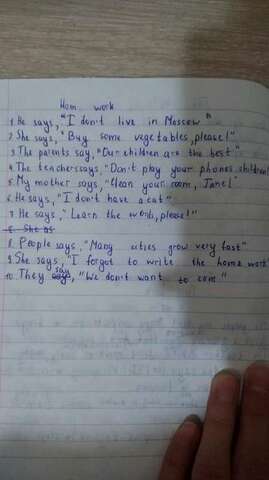 Hom work
1. He says, "I don't live in Moscow"
2. She says, "Buy some vegetables, please!"
3. The parents say, "Our children are the best"
4. The teacher says, "Don't play your phones children!
5. My mother says, "Clean your room, Jane!"
6. He says, "I don't have a cat"
7. He says, "Learn the words, please!"
8. People says, "Many cities grow very fast"
9. She says, "I forgot to write the home work"
10. They say, "We don't want to com"